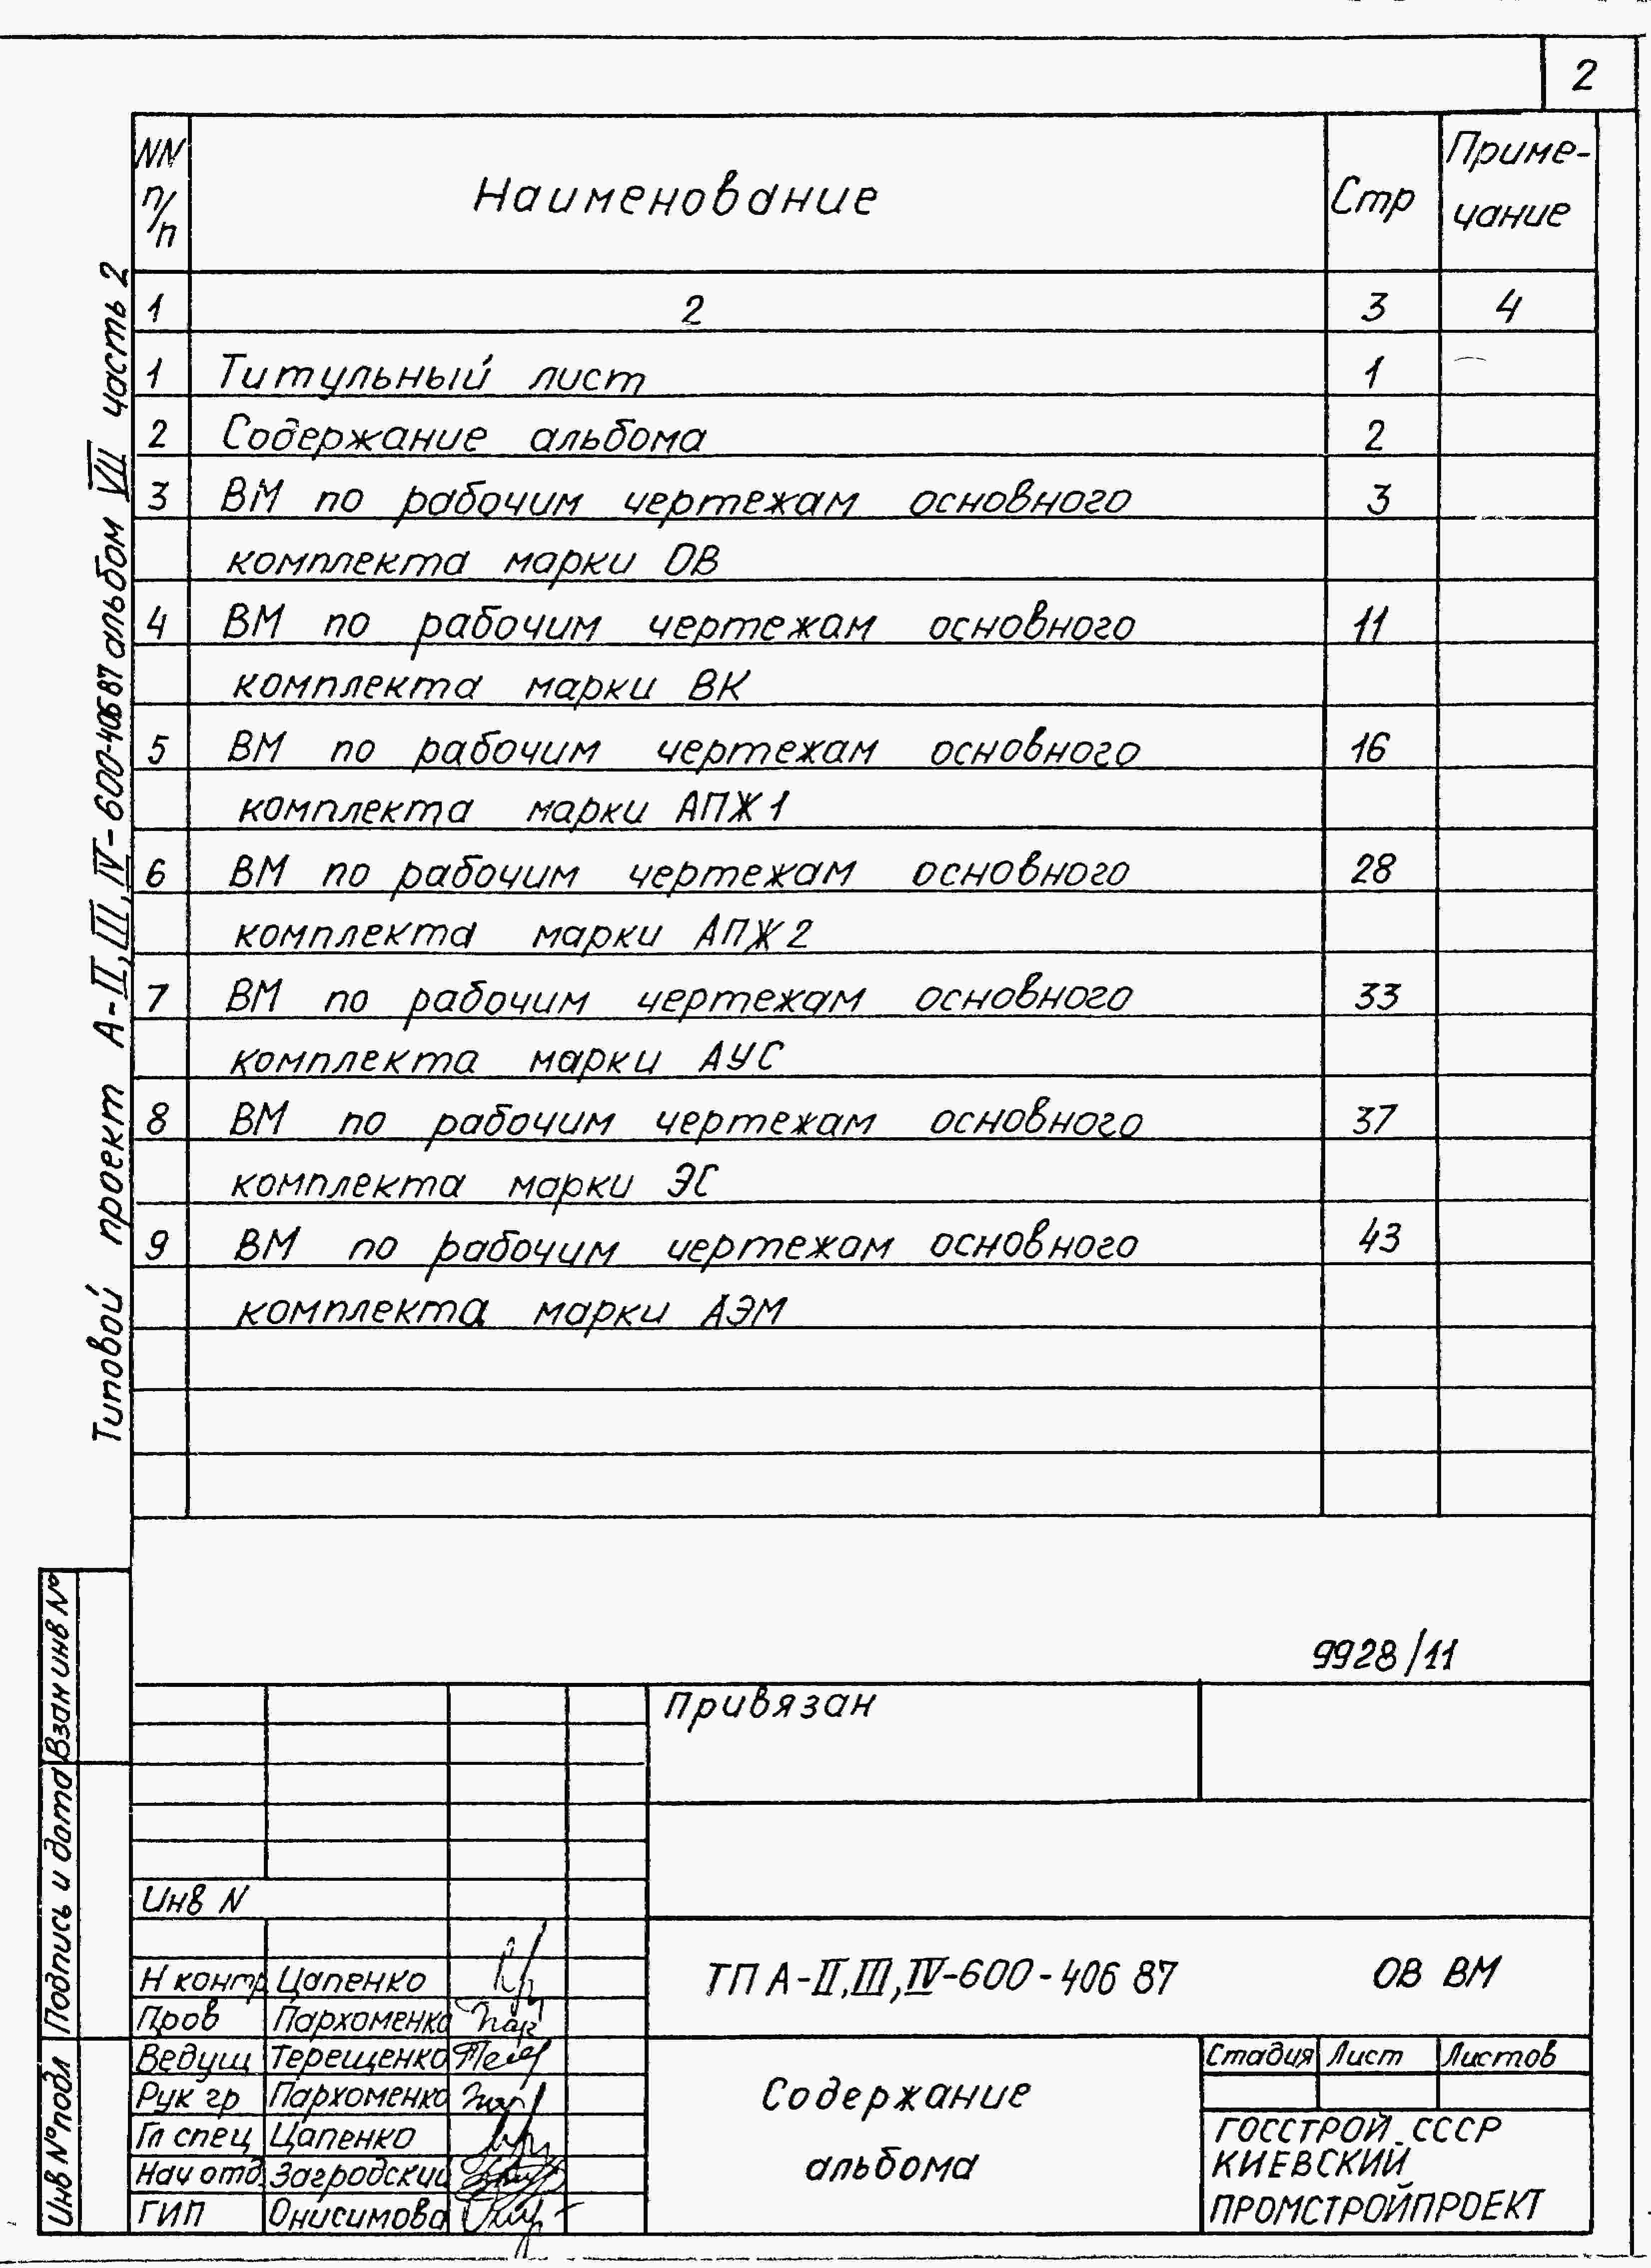 2
NN п/п Наименование Стр Приме-чание
1 2 3 4
1 Титульный лист 1
2 Содержание альбома 2
3 ВМ по рабочим чертежам основного 3
комплекта марки ОВ
4 ВМ по рабочим чертежам основного 11
комплекта марки ВК
5 ВМ по рабочим чертежам основного 16
комплекта марки АПЖ1
6 ВМ по рабочим чертежам основного 28
комплекта марки АПЖ2
7 ВМ по рабочим чертежам основного 33
комплекта марки АУС
8 ВМ по рабочим чертежам основного 37
комплекта марки ЭС
9 ВМ по рабочим чертежам основного 43
комплекта марки АЭМ
Типовой проект А-II,III,IV-600-406 87 альбом VII часть 2
Взан инв №
Подпись и дата
Инв № подл
9928/11
Привязан
Инв N
Н контр Цапенко
Пров Пархоменко
Ведущ Терещенко
Рук гр Пархоменко
Гл спец Цапенко
Нач отд Загродский
ГИП Онисимова
ТП А-II,III,IV-600-406 87 ОВ ВМ
Содержание
альбома
Стадия Лист Листов
ГОССТРОЙ СССР
КИЕВСКИЙ
ПРОМСТРОЙПРОЕКТ